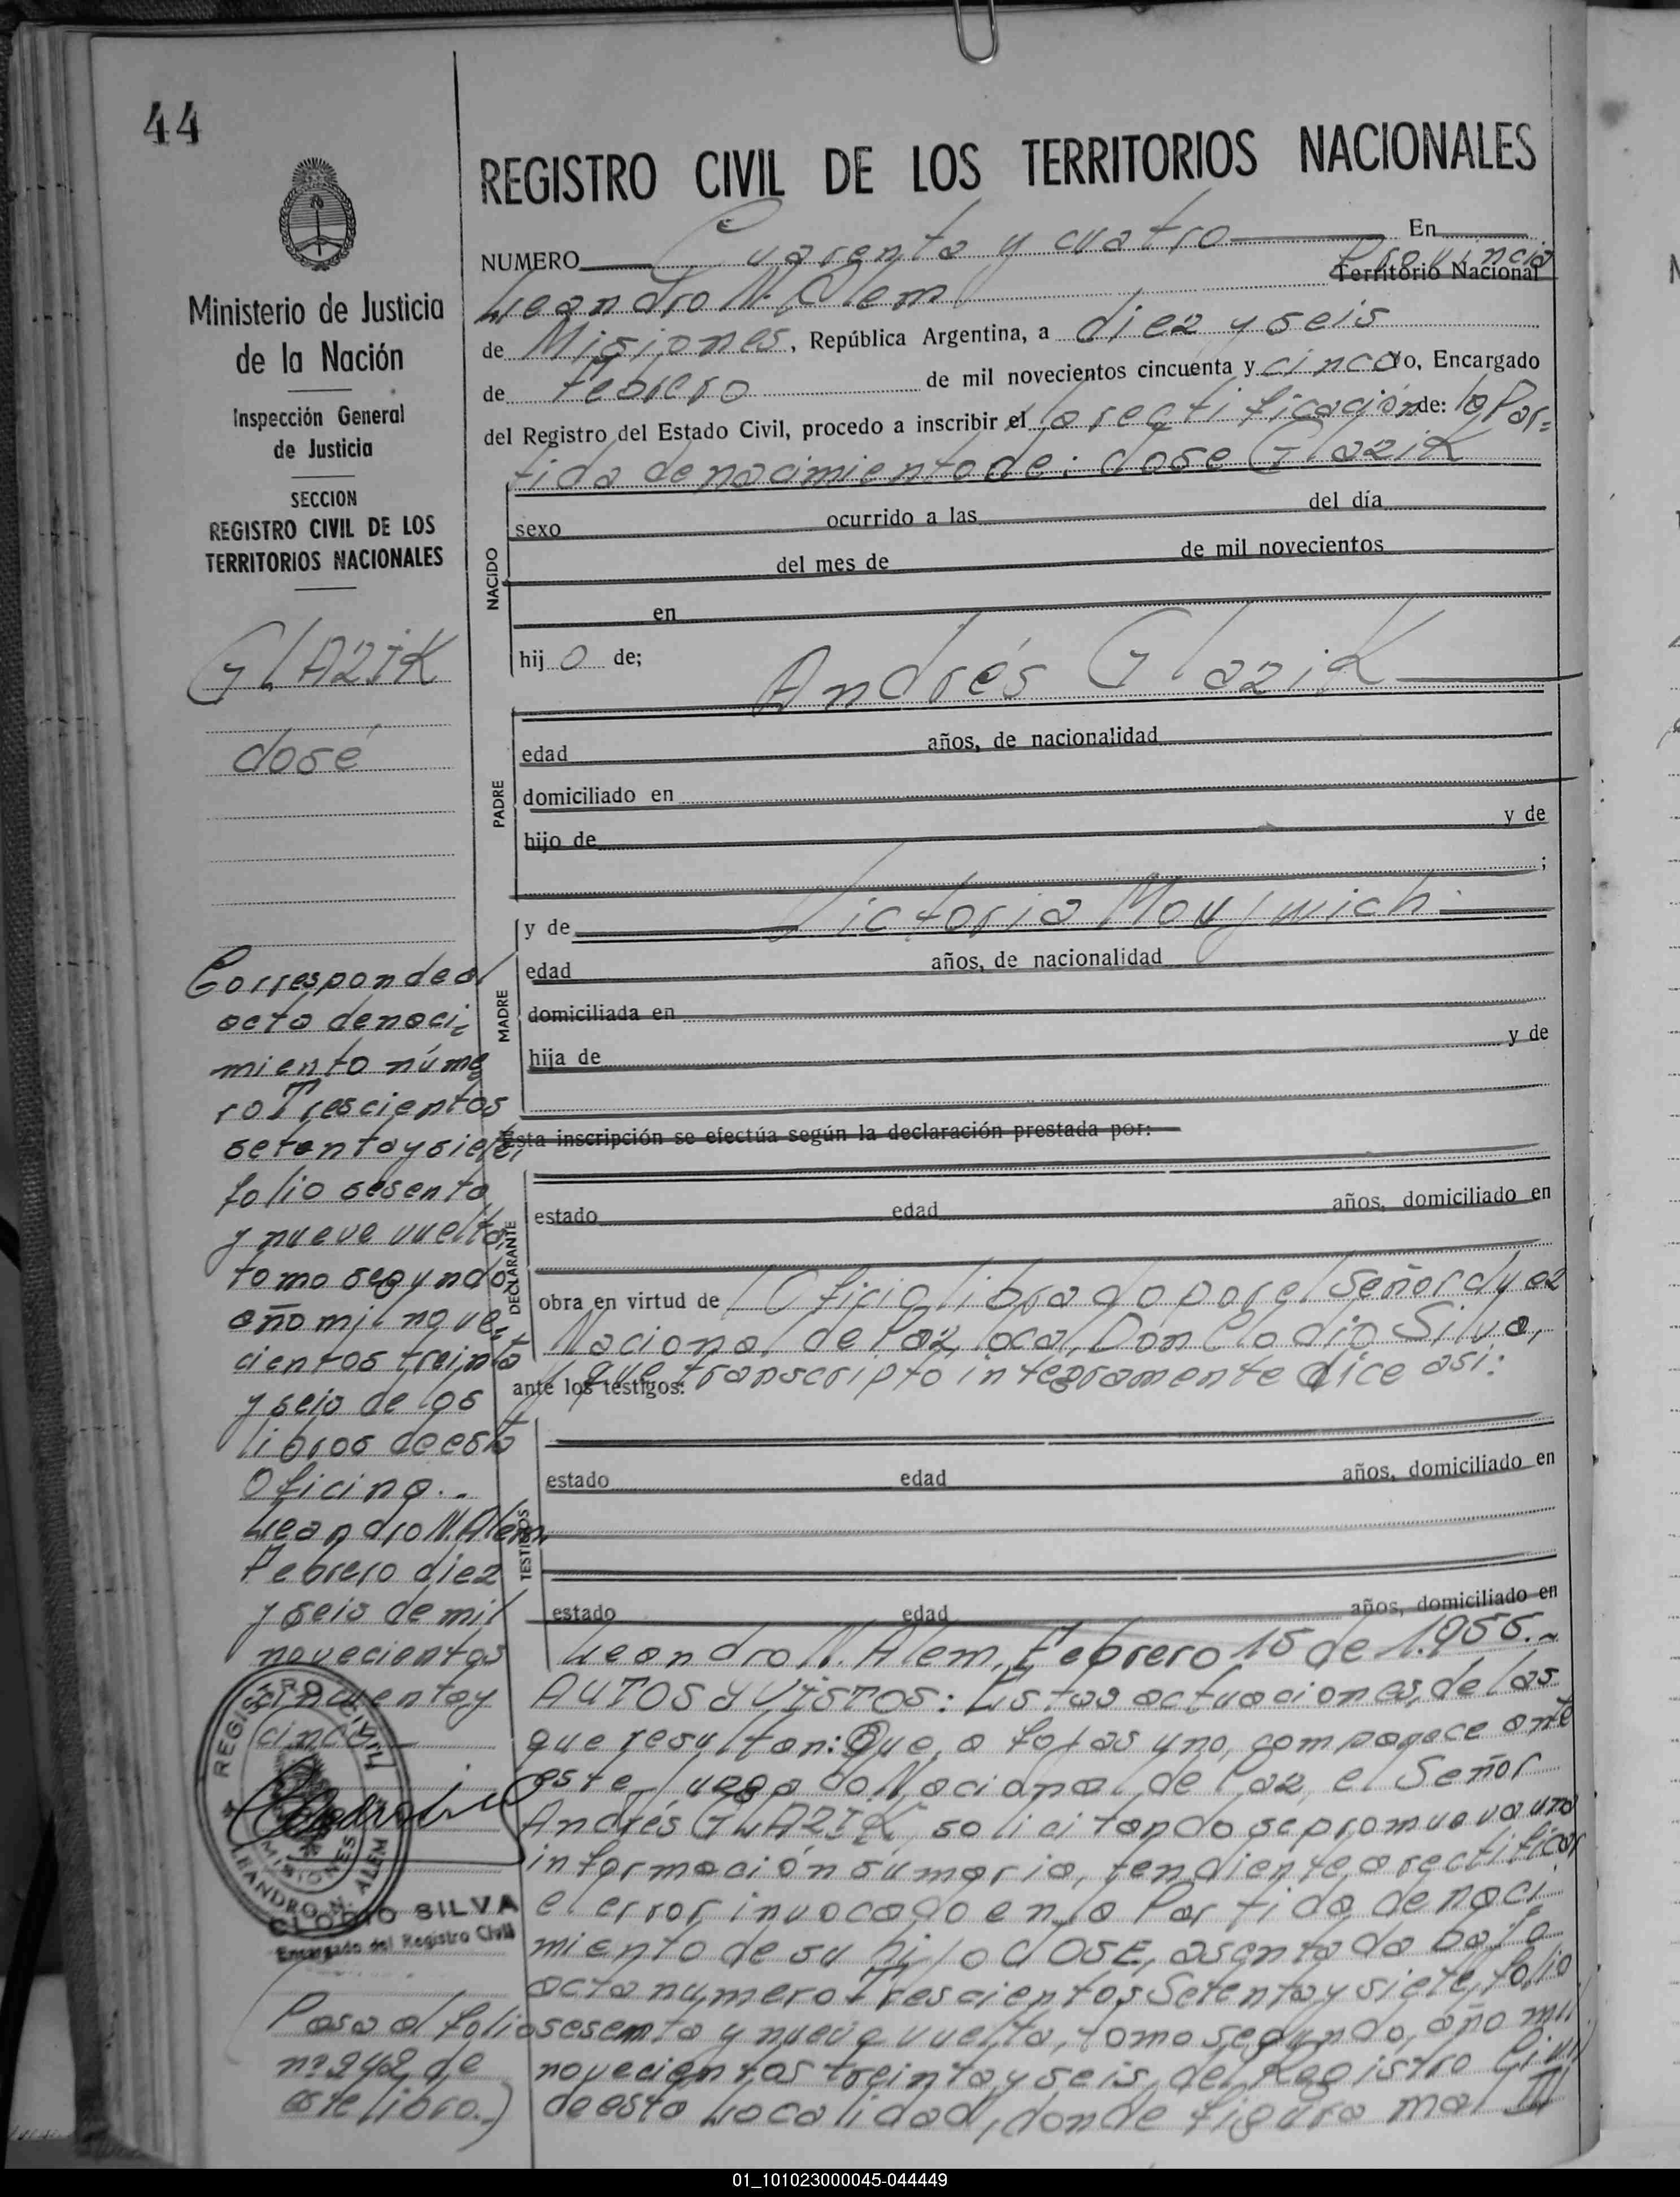 44
REGISTRO CIVIL DE LOS TERRITORIOS NACIONALES
NUMERO Cuarenta y cuatro En
Provincia
Territorio Nacional
Leandro N. Alem
de Misiones, República Argentina, a diez y seis
de Febrero de mil novecientos cincuenta y cinco yo, Encargado
del Registro del Estado Civil, procedo a inscribir el la rectificación de: la Par=
tida de nacimiento de: José Glazik
Ministerio de Justicia
de la Nación
Inspección General
de Justicia
SECCION
REGISTRO CIVIL DE LOS
TERRITORIOS NACIONALES
GLAZIK
José
NACIDO
sexo ocurrido a las del día
del mes de de mil novecientos
en
hijo de; Andrés Glazik
PADRE
edad años, de nacionalidad
domiciliado en
hijo de y de
;
y de Victoria
MADRE
edad años, de nacionalidad
domiciliada en
hija de y de
Esta inscripción se efectúa según la declaración prestada por:
DECLARANTE
estado edad años, domiciliado en
obra en virtud de l Oficio librado por el Señor Juez
Nacional de Paz local, Don Clodio Silva,
y que transcripto integramente dice asi:
ante los testigos:
TESTIGOS
estado edad años, domiciliado en
estado edad años, domiciliado en
Leandro N. Alem, Febrero 15 de 1.955.-
AUTOS Y VISTOS: Estas actuaciones, de las
que resultan: Que, a fojas uno, comparece ante
este Juzgado Nacional de Paz, el Señor
Andrés GLAZIK, solicitando se promueva una
información sumaria, tendiente a rectificar
el error invocado en la Partida de naci
miento de su hijo JOSE, asentada bajo
acta numero Trescientos Setenta y siete, folio
sesenta y nueve vuelta, tomo segundo, año mil
novecientos treinta y seis, del Registro Civil
de esta Localidad, donde figura mal III
Corresponde al
acta de naci=
miento núme
ro Trescientos
setenta y siete,
folio sesenta
y nueve vuelta,
tomo segundo
año mil nove=
cientos treinta
y seis de los
libros de esta
Oficina.-
Leandro N. Alem,
Febrero diez
y seis de mil
novecientos
cincuenta y
cinco
REGISTRO CIVIL
MISIONES
LEANDRO N. ALEM
CLODIO SILVA
Encargado del Registro Civil
Pasa al folio
nº 242 de
este libro.)
01_101023000045-044449